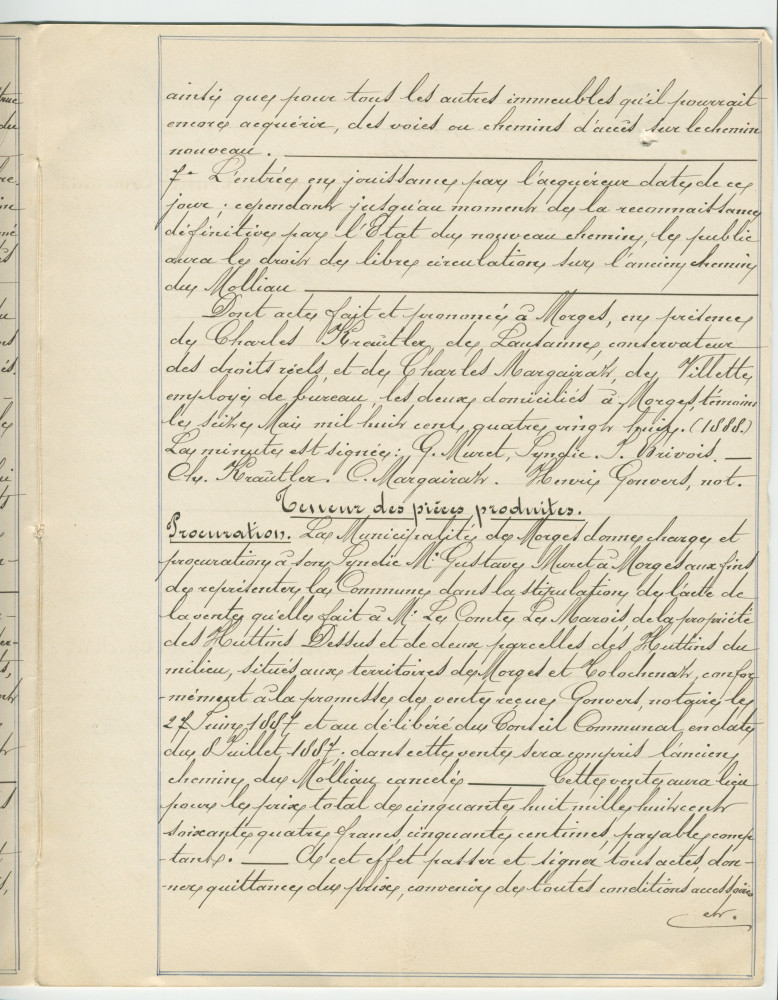 ainsi que pour tous les autres immeubles qu'il pourrait
encore acquérir, des voies ou chemins d'accès sur le chemin
nouveau. —
7° L'entrée en jouissance par l'acquéreur date de ce
jour; cependant jusqu'au moment de la reconnaissance
définitive par l'Etat du nouveau chemin, le public
aura le droit de libre circulation sur l'ancien chemin
du Molliau —
Dont acte fait et prononcé à Morges, en présence
de Charles Kraütler, de Lausanne, conservateur
des droits réels, et de Charles Margairaz, de Villette,
employé de bureau, les deux domiciliés à Morges, témoins
le seize Mai mil huit cent quatre vingt huit. (1888.)
La minute est signée: G. Muret, Syndic. J. Brivois. —
Ch. Kraütler. C. Margairaz. Henri Gonvers, not.
Teneur des pièces produites.
Procuration. La Municipalité de Morges donne charge et
procuration à son Syndic Mr Gustave Muret à Morges aux fins
de représenter la Commune dans la stipulation de l'acte de
la vente qu'elle fait à Mr Le Comte Le Marois, de la propriété
des Huttins Dessus et de deux parcelles des Huttins du
milieu, situés aux territoires de Morges et Tolochenaz, confor
-mément à la promesse de vente reçue Gonvers, notaire, le
27 Juin 1887 et au délibéré du Conseil Communal en date
du 8 Juillet 1887. dans cette vente sera compris l'ancien
chemin du Molliau cancelé — Cette vente aura lieu
pour le prix total de cinquante huit mille huit cent
soixante quatre francs, cinquante centimes payable comp
-tant. — A cet effet passer et signer tous actes, don-
-ner quittance du prix, convenir de toutes conditions accessoires
etc.